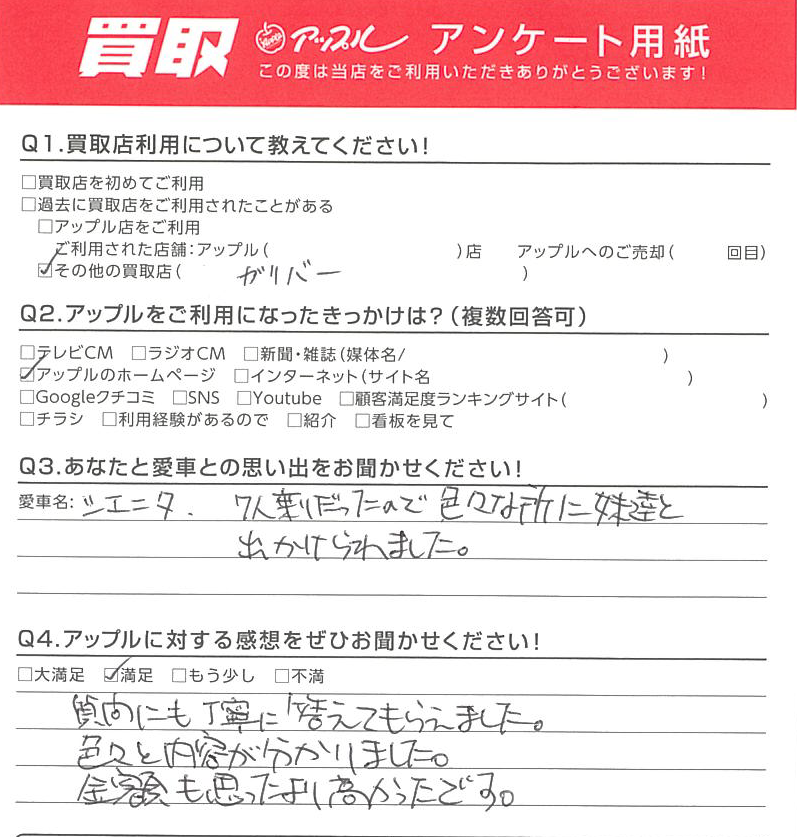 買取 アップル アンケート用紙
この度は当店をご利用いただきありがとうございます!
Q1.買取店利用について教えてください!
□買取店を初めてご利用
□過去に買取店をご利用されたことがある
□アップル店をご利用
ご利用された店舗:アップル( )店 アップルへのご売却( 回目)
☑その他の買取店( ガリバー )
Q2.アップルをご利用になったきっかけは?(複数回答可)
□テレビCM □ラジオCM □新聞・雑誌(媒体名/ )
☑アップルのホームページ □インターネット(サイト名 )
□Googleクチコミ □SNS □Youtube □顧客満足度ランキングサイト( )
□チラシ □利用経験があるので □紹介 □看板を見て
Q3.あなたと愛車との思い出をお聞かせください!
愛車名: シエンタ. 7人乗りだったので色々な所に妹達と
出かけられました。
Q4.アップルに対する感想をぜひお聞かせください!
□大満足 ☑満足 □もう少し □不満
質問にも丁寧に答えてもらえました。
色々と内容が分かりました。
金額も思ったより高かったです。